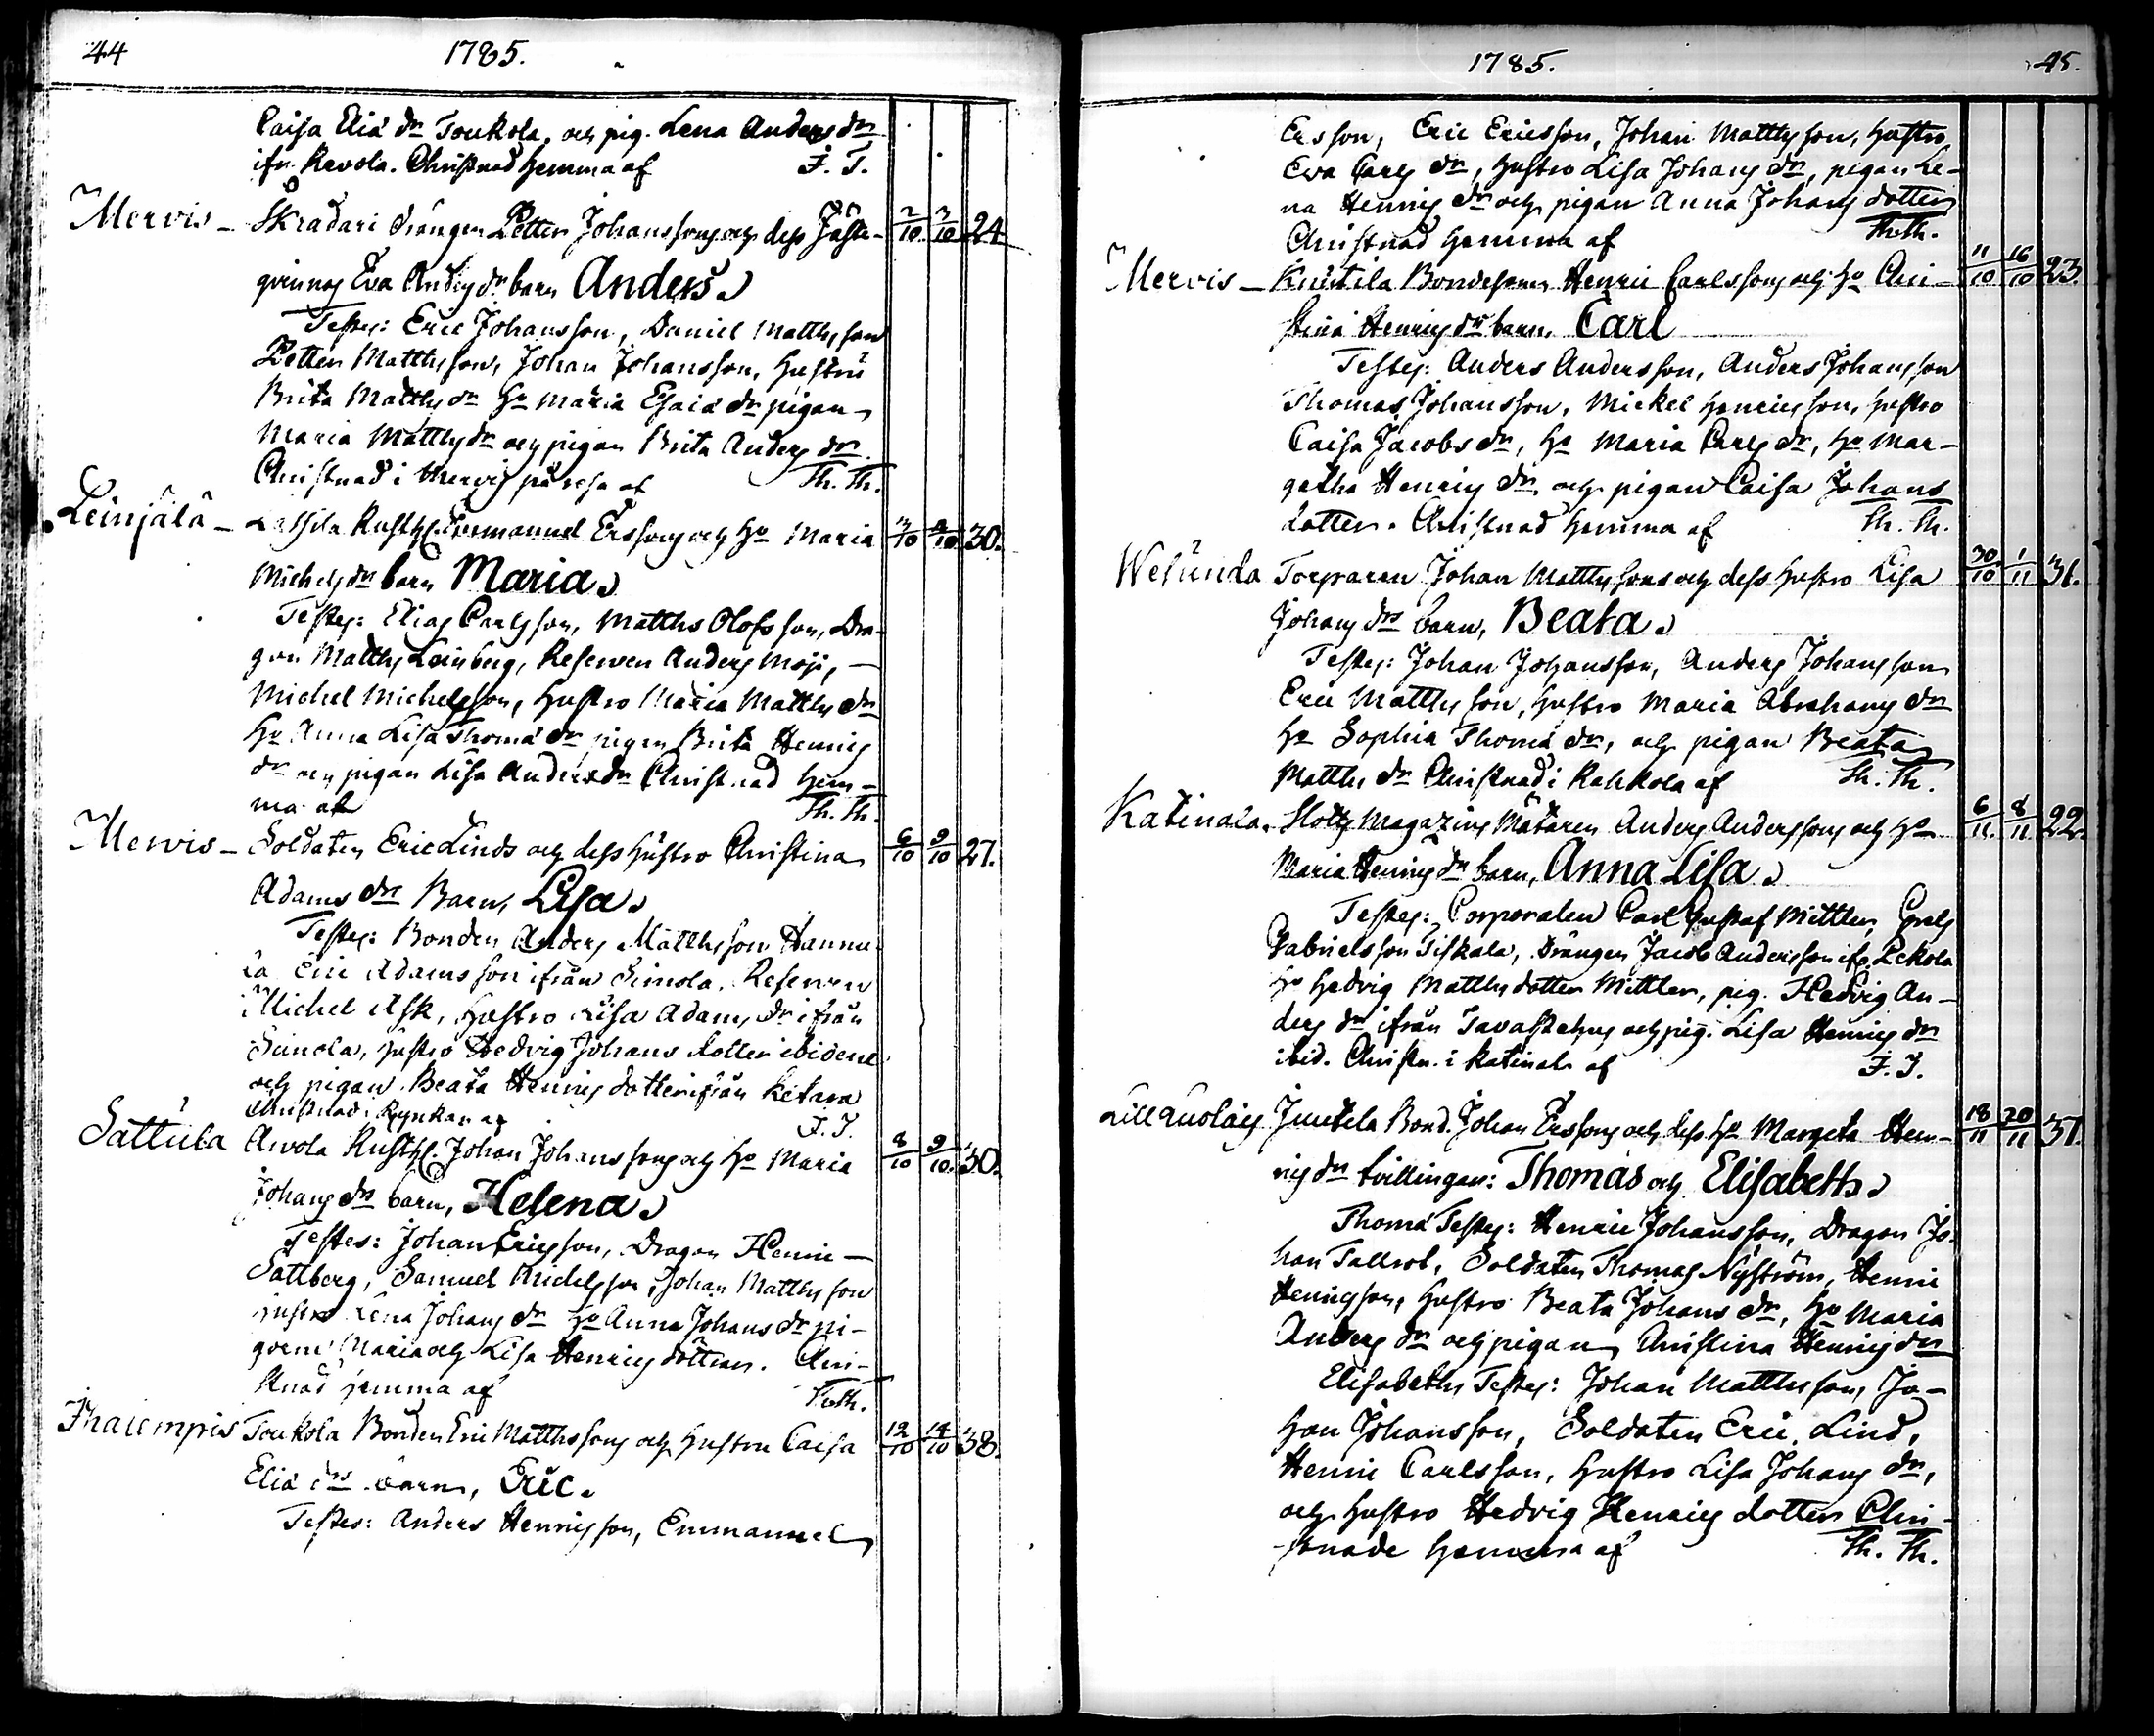 44 1785.
Caisa Eliæ dr Toukola, och pig. Lena Anders dr
ifr. Revola. Christnad hemma af F. T.
Mervis - Skradari drängen Petter Johanssons och dess Fäste- 2/10 3/10 24
qvinnas Eva Anders dr barn Anders.
Testes: Eric Johansson, Daniel Matthsson
Petter Matthsson, Johan Johansson, hustru
Brita Matths dr ho Maria Esaiæ dr pigan
Maria Matths dr och pigan Brita Anders dr
Christnad i Mervis på resa af Th. Th.
Leinjälä - Lassila Rusth. Emmanuel Erssons och ho Maria 3/10 4/10 30.
Michels dr barn Maria.
Testes: Elias Carlsson, Matths Olofsson, Dra-
gon Matths Leinberg, Reserven Anders
Michel Michelsson, hustro Maria Matths dr
ho Anna Lisa Thomæ dr pigan Brita Henrics
dr och pigan Lisa Anders dr Christnad hem-
ma af Th. Th.
Mervis - Soldaten Eric Linds och dess hustro Christina 6/10 9/10 27.
Adams dr Barn, Lisa.
Testes: Bonden Anders Matthsson Hannu
la Eric Adamsson ifrån Simola, Reserven
Michel Ask, hustro Lisa Adams dr ifrån
Simola, hustro Hedvig Johans dotter ibidem
och pigan Beata Henrics dotter ifrån Ketara
Christnad i af F. T.
Sattula Arvola Rusth. Johan Johanssons och ho Maria 8/10 9/10 30.
Johans dr barn, Helena.
Testes: Johan Ericsson, Dragon Henric
Sattberg, Samuel Michelsson, Johan Matthsson
hustro Lena Johans dr ho Anna Johans dr pi-
gorne Maria och Lisa Henrics döttrar. Chri-
stnad hemma af Th. Th.
Ihalempis Toukola Bonden Eric Matthssons och hustru Caisa 12/10 14/10 38.
Eliæ drs barn, Eric.
Testes: Anders Henricsson, Emmanuel
1785. 45.
Ersson, Eric Ericsson, Johan Matthsson, hustro
Eva Carls dr, hustro Lisa Johans dr, pigan Le-
na Henrics dr och pigan Anna Johans dotter
Christnad hemma af Th. Th.
Mervis - Knutila Bondesonen Henric Carlssons och ho Chri- 11/10 16/10 23.
stina Henrics dr barn, Carl
Testes: Anders Andersson, Anders Johansson
Thomas Johansson, Mickel Henricsson, hustro
Caisa Jacobs dr, ho Maria Carls dr, ho Mar-
getha Henrics dr, och pigan Caisa Johans
dotter. Christnad hemma af Th. Th.
Welunda Torparen Johan Matthssons och dess hustro Lisa 30/10 1/11 31.
Johans drs barn, Beata.
Testes: Johan Johansson, Anders Johansson
Eric Matthsson, hustro Maria Abrahams dr
ho Sophia Thomæ dr, och pigan Beata
Matths dr Christnad i Rahkola af Th. Th.
Katinala. Slotts Magazins Mätaren Anders Anderssons och ho 6/11. 8/11 22.
Maria Henrics dr barn, Anna Lisa.
Testes: Corporalen Carl Gustaf Mittler,
Gabrielsson Tiskala, Drängen Jacob Andersson ifr. Pekola
ho Hedvig Matths dotter Mittler, pig. Hedvig An-
ders dr ifrån Tavastehus och pig. Lisa Henrics dr
ibid. Christn. i Katinala af F. T.
Lill Luolais Juutila Bond. Johan Erssons och dess ho Margeta Hen- 18/11 20/11 37.
rics dr tvillingar: Thomas och Elisabeth.
Thomæ Testes: Henric Johansson, Dragon Jo-
han Tallrot, Soldaten Thomas Nyström, Henric
Henricsson, hustro Beata Johans dr, ho Maria
Anders dr och pigan Christina Henrics dr
Elisabeths Testes: Johan Matthsson, Jo-
han Johansson, Soldaten Eric Lind,
Henric Carlsson, hustro Lisa Johans dr,
och hustro Hedvig Henrics dotter Chri-
stnade hemma af Th. Th.